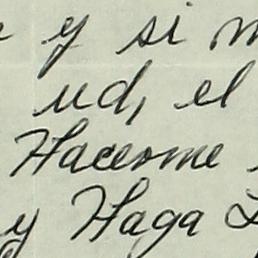 y si
ud, el
Hacerme
y Haga